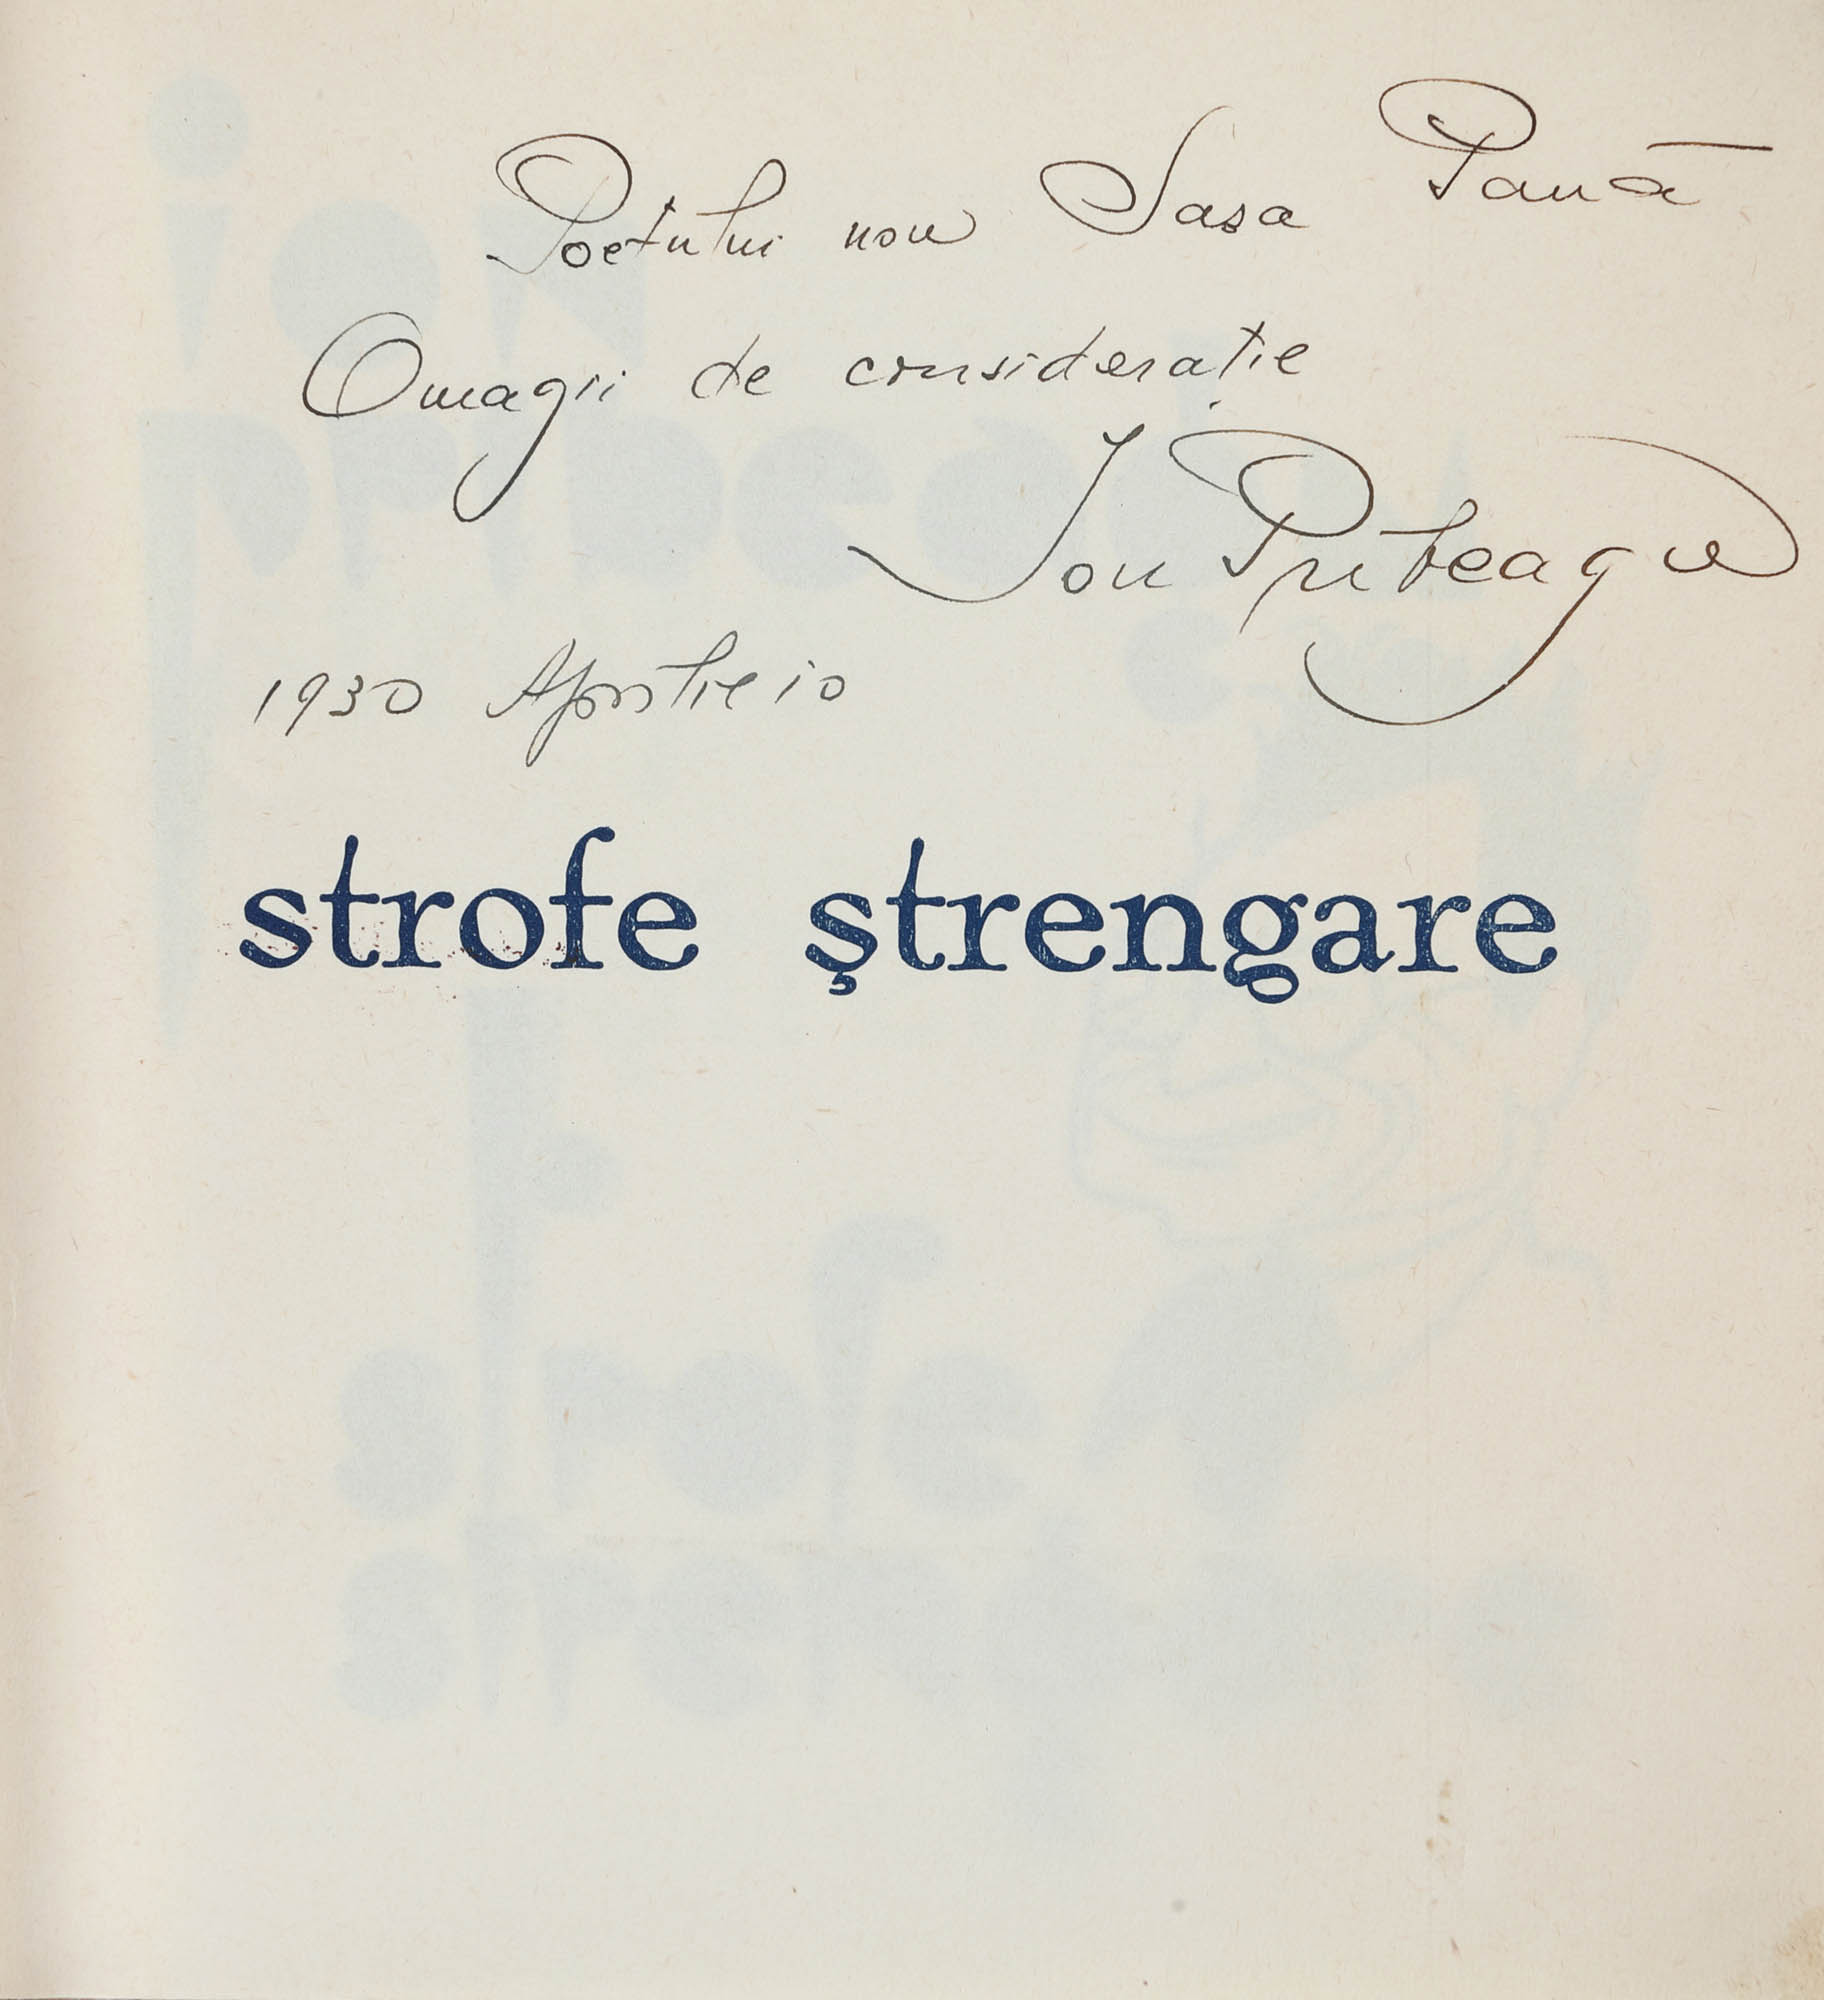 Poetului nou Sașa Pană
Omagii de considerație
Ion Pribeagu
1930 Aprilie 10
strofe ștrengare